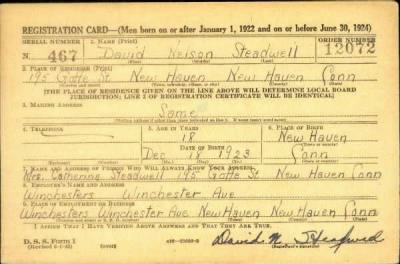 REGISTRATION CARD—(Men born on or after January 1, 1922 and on or before June 30, 1924)
SERIAL NUMBER 1. NAME (Print) ORDER NUMBER
N 467 David Nelson Steadwell 12072
(First) (Middle) (Last)
2. PLACE OF RESIDENCE (Print)
195 St New Haven New Haven Conn
[THE PLACE OF RESIDENCE GIVEN ON THE LINE ABOVE WILL DETERMINE LOCAL BOARD
JURISDICTION; LINE 2 OF REGISTRATION CERTIFICATE WILL BE IDENTICAL]
3. MAILING ADDRESS
Same
4. TELEPHONE 5. AGE IN YEARS 6. PLACE OF BIRTH
18 New Haven
DATE OF BIRTH
Dec 1923 Conn
7. NAME AND ADDRESS OF PERSON WHO WILL ALWAYS KNOW YOUR ADDRESS
Mrs. Catherine Steadwell 195 St New Haven Conn
8. EMPLOYER'S NAME AND ADDRESS
Winchesters Winchester Ave
9. PLACE OF EMPLOYMENT OR BUSINESS
Winchesters Winchester Ave New Haven New Haven Conn
I AFFIRM THAT I HAVE VERIFIED ABOVE ANSWERS AND THAT THEY ARE TRUE.
D. S. S. Form 1
David N Steadwell